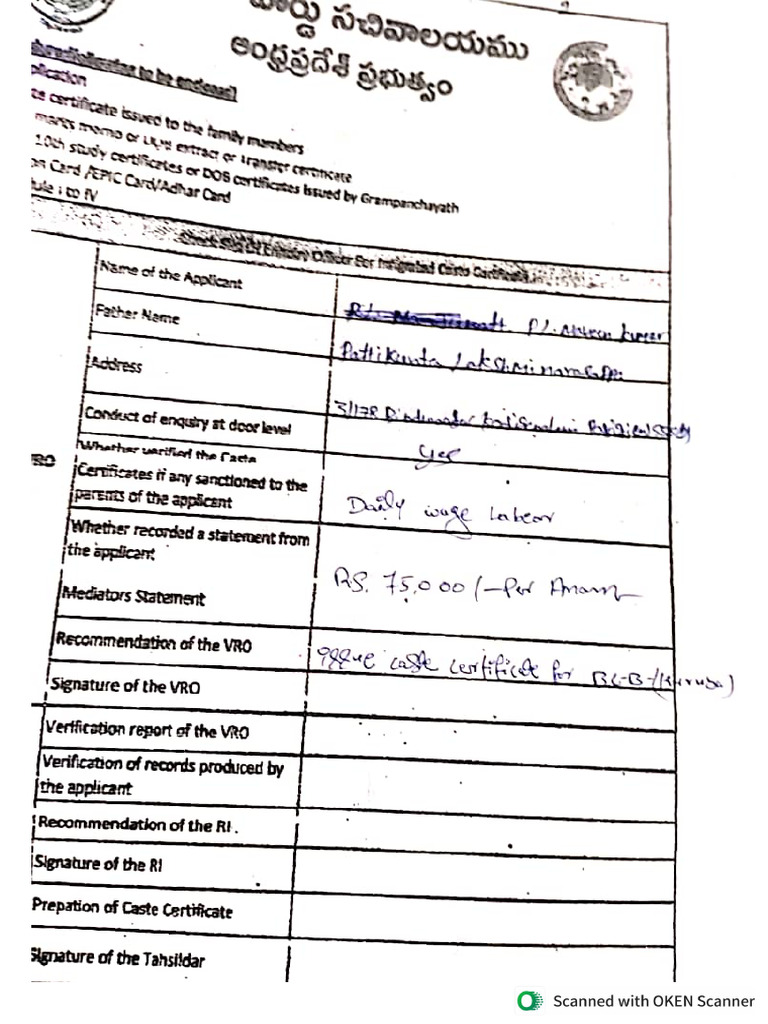 వార్డు సచివాలయము
ఆంధ్రప్రదేశ్ ప్రభుత్వం
to be enclosed)
plication
certificate issued to the family members
marks memo or extract or transfer certificate
10th study certificates or DOB certificates issued by Grampanchayath
on Card /EPIC Card/Adhar Card
dule I to IV
Check Slip Of Enquiry Officer For Integrated Caste Certificate
Name of the Applicant
P/. kumar
Father Name
Pattikunta
Address
3/178
Conduct of enquiry at door level
yes
Whether verified the Caste
VRO
Certificates if any sanctioned to the
parents of the applicant
Daily wage labour
Whether recorded a statement from
the applicant
RS. 75,000/- Per Anam
Mediators Statement
Recommendation of the VRO
issue caste certificate for BC-B-(Kuruba)
Signature of the VRO
Verfication report of the VRO
Verification of records produced by
the applicant
Recommendation of the RI .
Signature of the RI
Prepation of Caste Certificate
Signature of the Tahsildar
Scanned with OKEN Scanner